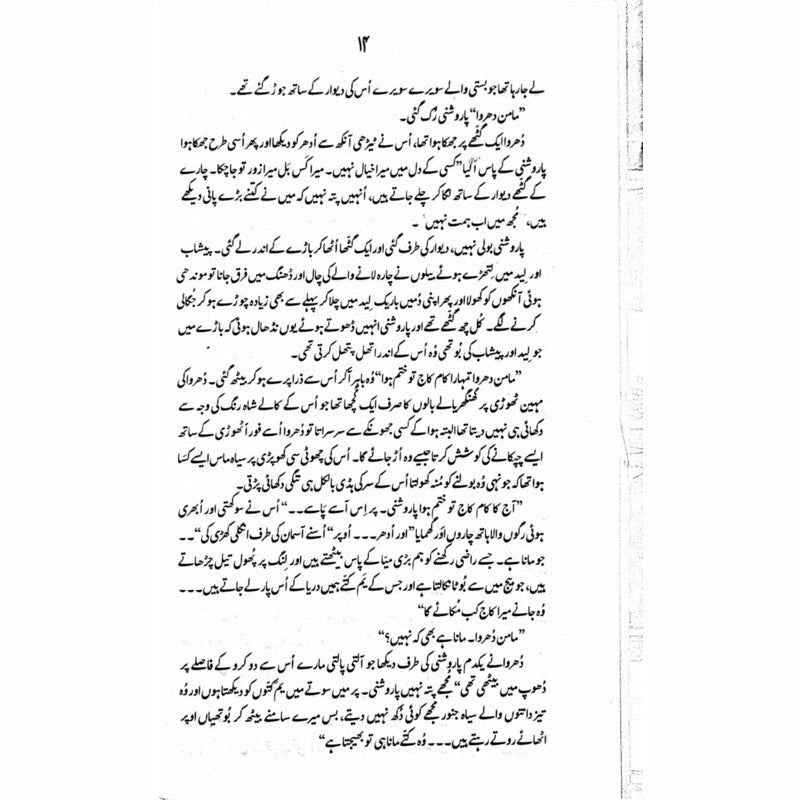 ۱۴
لے جا رہا تھا جو بستی والے سویرے سویرے اُس کی دیوار کے ساتھ جوڑ گئے تھے۔
”مامن دھروا“ پاروشنی رُک گئی۔
دُھروا ایک گٹھے پر جھکا ہوا تھا، اُس نے ٹیڑھی آنکھ سے اُدھر کو دیکھا اور پھر اُسی طرح جھکا ہوا
پاروشنی کے پاس آگیا ”کسی کے دل میں میرا خیال نہیں۔ میرا کَس بَل میرا زور تو جا چکا۔ چارے
کے گٹھے دیوار کے ساتھ لگا کر چلے جاتے ہیں، اُنہیں پتہ نہیں کہ میں نے کتنے بڑے پانی دیکھے
ہیں، مُجھ میں اب ہمت نہیں“۔
پاروشنی بولی نہیں، دیوار کی طرف گئی اور ایک گٹھا اُٹھا کر باڑے کے اندر لے گئی۔ پیشاب
اور لید میں لتھڑے ہوئے بیلوں نے چارہ لانے والے کی چال اور ڈھنگ میں فرق جانا تو موندھی
ہوئی آنکھوں کو کھولا اور پھر اپنی دُمیں باریک لید میں چلا کر پہلے سے بھی زیادہ چوڑے ہو کر جُگالی
کرنے لگے۔ کُل چھ گٹھے تھے اور پاروشنی انہیں ڈھوتے ہوئے یوں نڈھال ہوئی کہ باڑے میں
جو لید اور پیشاب کی بُو تھی وُہ اُس کے اندر اتھل پتھل کرتی تھی۔
”مامن دھروا تمہارا کام کاج تو ختم ہوا“ وُہ باہر آکر اُس سے ذرا پرے ہو کر بیٹھ گئی۔ دُھروا کی
مہین ٹھوڑی پر گھنگھریالے بالوں کا صرف ایک گُچھا تھا جو اُس کے کالے شاہ رنگ کی وجہ سے
دکھائی ہی نہیں دیتا تھا البتہ ہوا کے کسی جھونکے سے سرسراتا تو دُھروا اُسے فوراً ٹھوڑی کے ساتھ
ایسے چپکانے کی کوشش کرتا جیسے وہ اُڑ جائے گا۔ اُس کی چھوٹی سی کھوپڑی پر سیاہ ماس ایسے کَسا
ہوا تھا کہ جونہی وُہ بولنے کو مُنہ کھولتا اُس کے سر کی ہڈی بالکل ہی ننگی دکھائی پڑتی۔
”آج کا کام کاج تو ختم ہوا پاروشنی۔ پر اِس آسے پاسے۔۔“ اُس نے سوکھتی اور اُبھری
ہوئی رگوں والا ہاتھ چاروں اور گھمایا ”اور اُدھر۔۔۔ اُوپر“ اُسنے آسمان کی طرف انگلی کھڑی کی ”۔۔
جو مانا ہے۔ جسے راضی رکھنے کو ہم بڑی میّا کے پاس بیٹھتے ہیں اور لنگ پر پُھول تیل چڑھاتے
ہیں، جو بیج میں سے بُوٹا نکالتا ہے اور جس کے یَم کتّے ہمیں دریا کے اُس پار لے جاتے ہیں۔۔۔
وُہ جانے میرا کاج کب مُکائے گا“
”مامن دُھروا۔ مانا ہے بھی کہ نہیں؟“
دُھروا نے یکدم پاروشنی کی طرف دیکھا جو آلتی پالتی مارے اُس سے دو کرو کے فاصلے پر
دُھوپ میں بیٹھی تھی ”مُجھے پتہ نہیں پاروشنی۔ پر میں سوتے میں یم کتّوں کو دیکھتا ہوں اور وُہ
تیز دانتوں والے سیاہ جنور مجھے کوئی دُکھ نہیں دیتے، بس میرے سامنے بیٹھ کر بُوتھیاں اوپر
اٹھائے روتے رہتے ہیں۔۔۔ وُہ کتّے مانا ہی تو بھیجتا ہے“